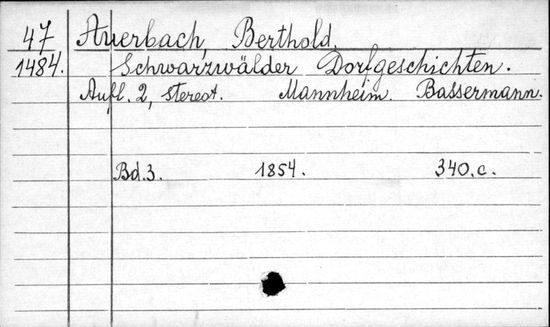 47 Auerbach, Berthold.
1484. Schwarzwälder Dorfgeschichten.
Aufl. 2, stereot. Mannheim. Bassermann.
Bd. 3. 1854. 340.c.